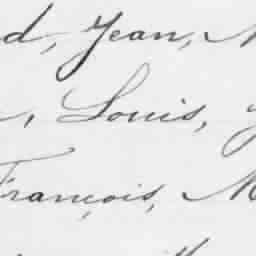 d, Jean,
, Louis,
François, M